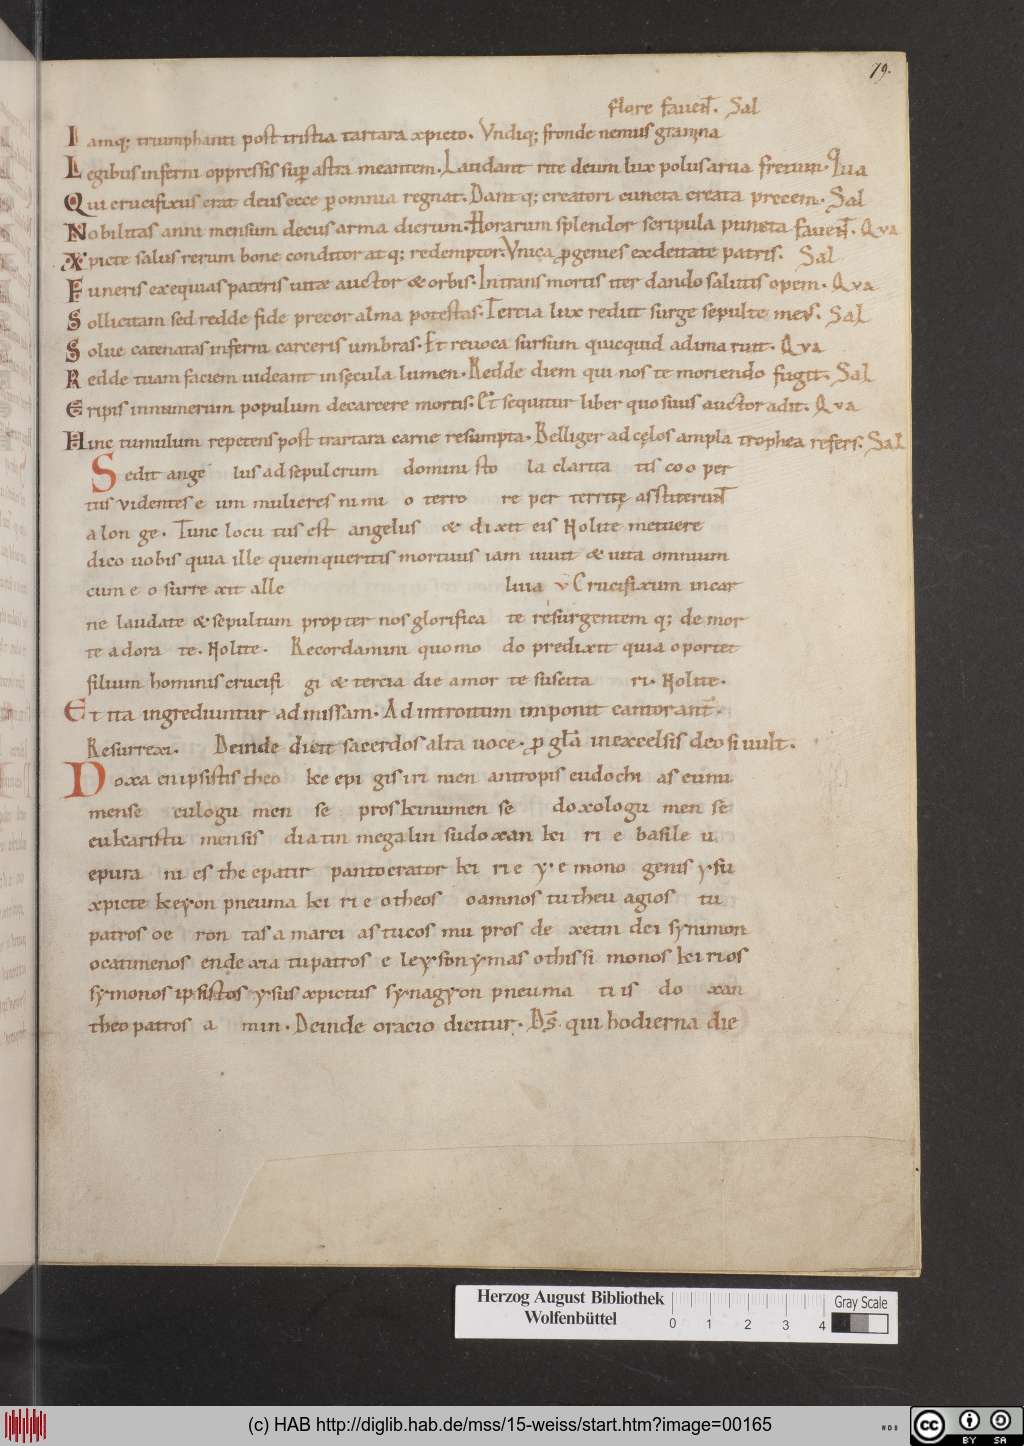 79.
flore fauen̄t. Sal
Iamq; triumphanti post tristia tartara xpicto. Vndiq; fronde nemus gramina
Legibus inferni oppressis sup astra meantem. Laudant rite deum lux polus arua fretum. Qua
Qui crucifixus erat deus ecce p omnia regnat. Dantq; creatori cuncta creata precem. Sal
Nobilitas anni mensum decus arma dierum. Horarum splendor scripula puncta fauen̄t. Qva
Xpicte salus rerum bone conditor atq; redemptor. Vnica pgenies ex deitate patris. Sal
Funeris exequias pateris uitæ auctor & orbis. Intrans mortis iter dando salutis opem. Qva
Sollicitam sed redde fide precor alma potestas. Tercia lux rediit surge sepulte meus. Sal
Solue catenatas inferni carceris umbras. Et reuoca sursum quicquid ad ima ruit. Qva
Redde tuam faciem uideant insęcula lumen. Redde diem qui nos te moriendo fugit. Sal
Eripis innumerum populum decarcere mortis. Et sequitur liber quo suus auctor adit. Qva
Hinc tumulum repetens post tartara carne resumpta. Belliger ad cęlos ampla trophea refers. Sal
Sedit ange lus ad sepulcrum domini sto la clarita tis co o per
tus videntes e um mulieres nimi o terro re per territę asstiterun̄t
a lon ge. Tunc locu tus est angelus & dixit eis Nolite metuere
dico uobis quia ille quem queritis mortuus iam uiuit & uita omnium
cum e o surre xit alle luia v̄ Crucifixum in car
ne laudate & sepultum propter nos glorifica te resurgentem q; de mor
te adora te. Nolite. Recordamini quomo do predixit quia oportet
filium hominis crucifi gi & tercia die a mor te suscita ri. Nolite.
Et ita ingrediuntur ad missam. Ad introitum imponit cantor ant̄.
Resurrexi. Deinde dicit sacerdos alta uoce. p gl̄a inexcelsis deo si uult.
Doxa en ipsistis theo ke epi gis iri nien antropis eudochi as eunu
mense eulogu men se proskinumen se doxologu men se
eukaristu mensis diatin megalin su doxan ki ri e basile u
epura ni es the epatir pantocrator ki ri e y. e mono genis ysu
xpicte keyon pneuma ki ri e otheos o amnos tu theu agios tu
patros oe ron tas amarci as tu cos mu pros de xetin dei synimon
ocatimenos en de xia tu patros e leyson ymas othis si monos ki ri os
symonos ipsistos ysus xpictus synagyon pneuma ti is do xan
theo patros a min. Deinde oracio dicitur. Ds̄. qui hodierna die
Herzog August Bibliothek
Wolfenbüttel
0 1 2 3 4
Gray Scale
(c) HAB http://diglib.hab.de/mss/15-weiss/start.htm?image=00165
cc BY SA